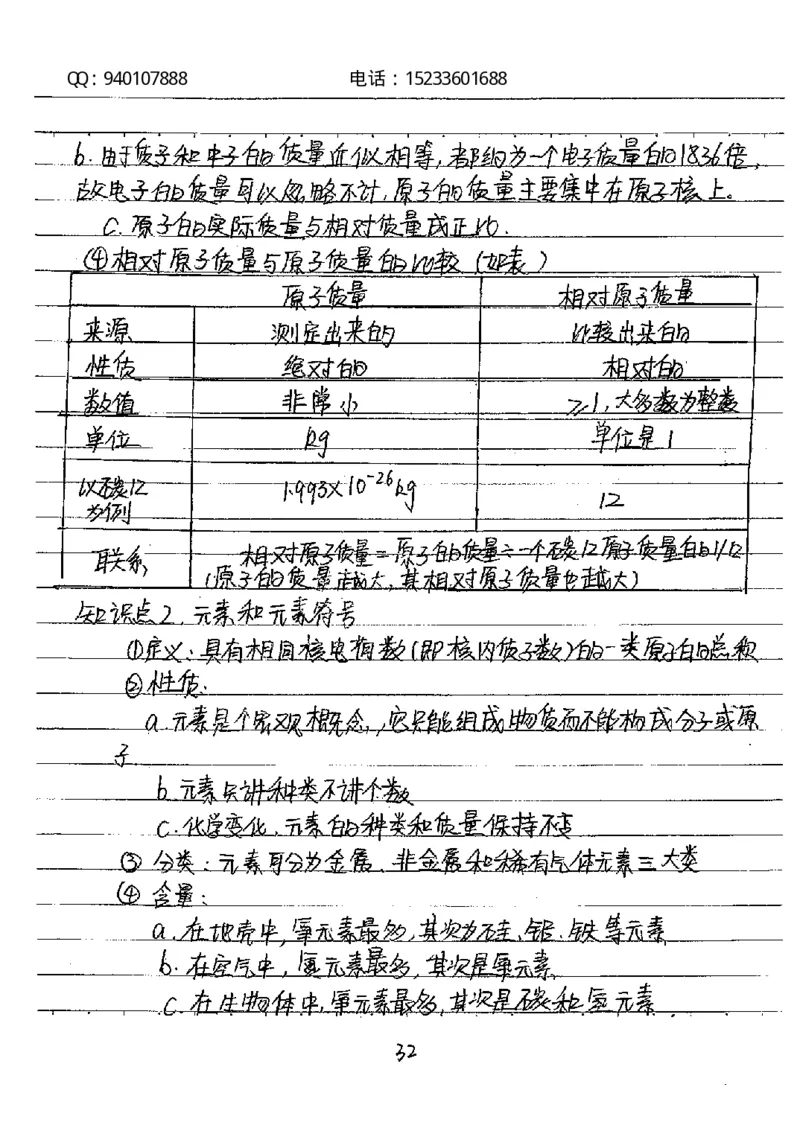 QQ：940107888 电话：15233601688
b. 由于质子和中子的质量近似相等,都约为一个电子质量的1836倍,
故电子的质量可以忽略不计,原子的质量主要集中在原子核上。
c. 原子的实际质量与相对质量成正比.
④相对原子质量与原子质量的比较 (如表)
原子质量 相对原子质量
来源 测定出来的 比较出来的
性质 绝对的 相对的
数值 非常小 ≥1,大多数为整数
单位 kg 单位是1
以碳12 1.993×10⁻²⁶kg 12
为例
联系 相对原子质量=原子的质量÷一个碳12原子质量的1/12
(原子的质量越大,其相对原子质量也越大)
知识点2.元素和元素符号
①定义:具有相同核电荷数(即核内质子数)的一类原子的总称
②性质:
a.元素是个宏观概念,它只能组成物质而不能构成分子或原
子
b.元素只讲种类不讲个数
c.化学变化、元素的种类和质量保持不变
③ 分类:元素可分为金属、非金属和稀有气体元素三大类
④ 含量:
a.在地壳中,氧元素最多,其次为硅、铝、铁等元素
b.在空气中,氮元素最多,其次是氧元素
c.在生物体中,氧元素最多,其次是碳和氢元素
32